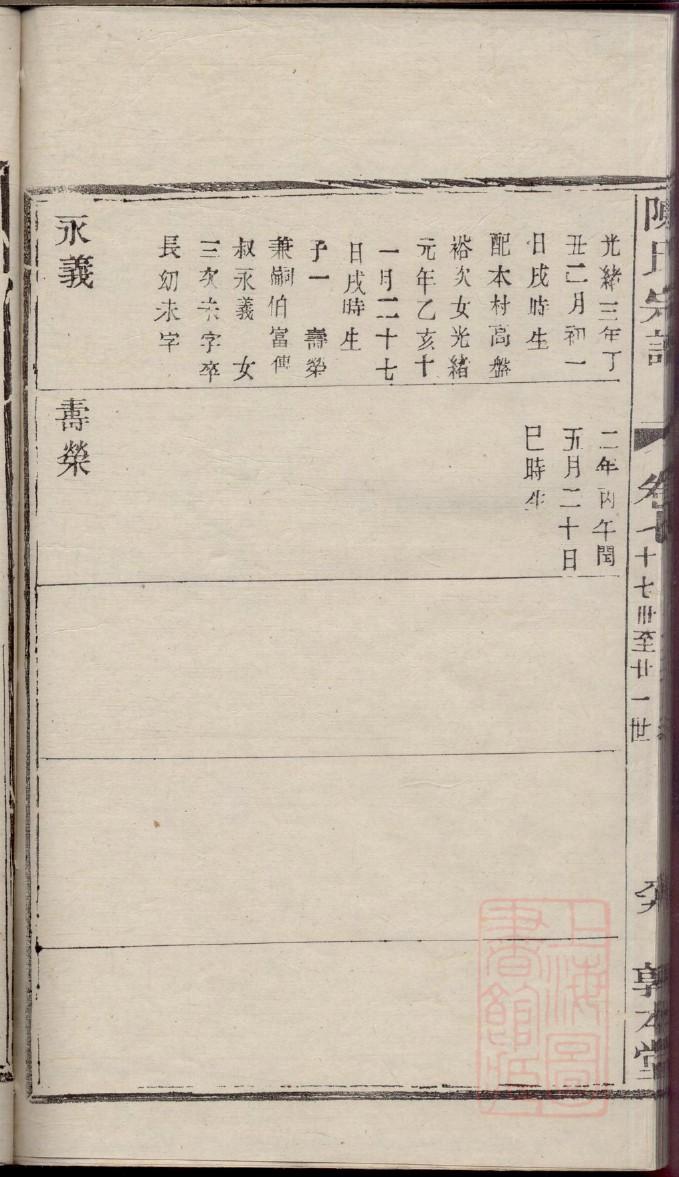 陳氏宗譜
卷十
十七世至廿一世
敦本堂
光緒三年丁
丑二月初一
日戌時生
配本村高盤
裕次女光緒
元年乙亥十
一月二十七
日戌時生
子一 壽榮
兼嗣伯富傳
叔永義 女
三次未字卒
長幼未字
永義
二年丙午閏
五月二十日
巳時生
壽榮
上海圖
書館藏